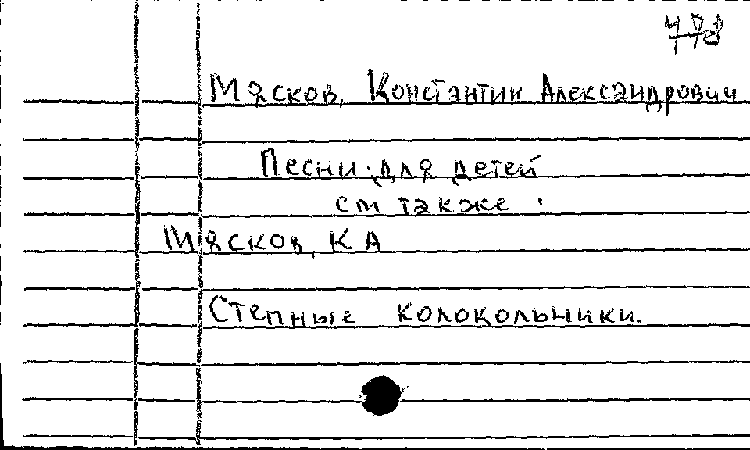 478
Мясков, Константин Александрович
Песни для детей
см также
Мясков, К А
Степные колокольчики.